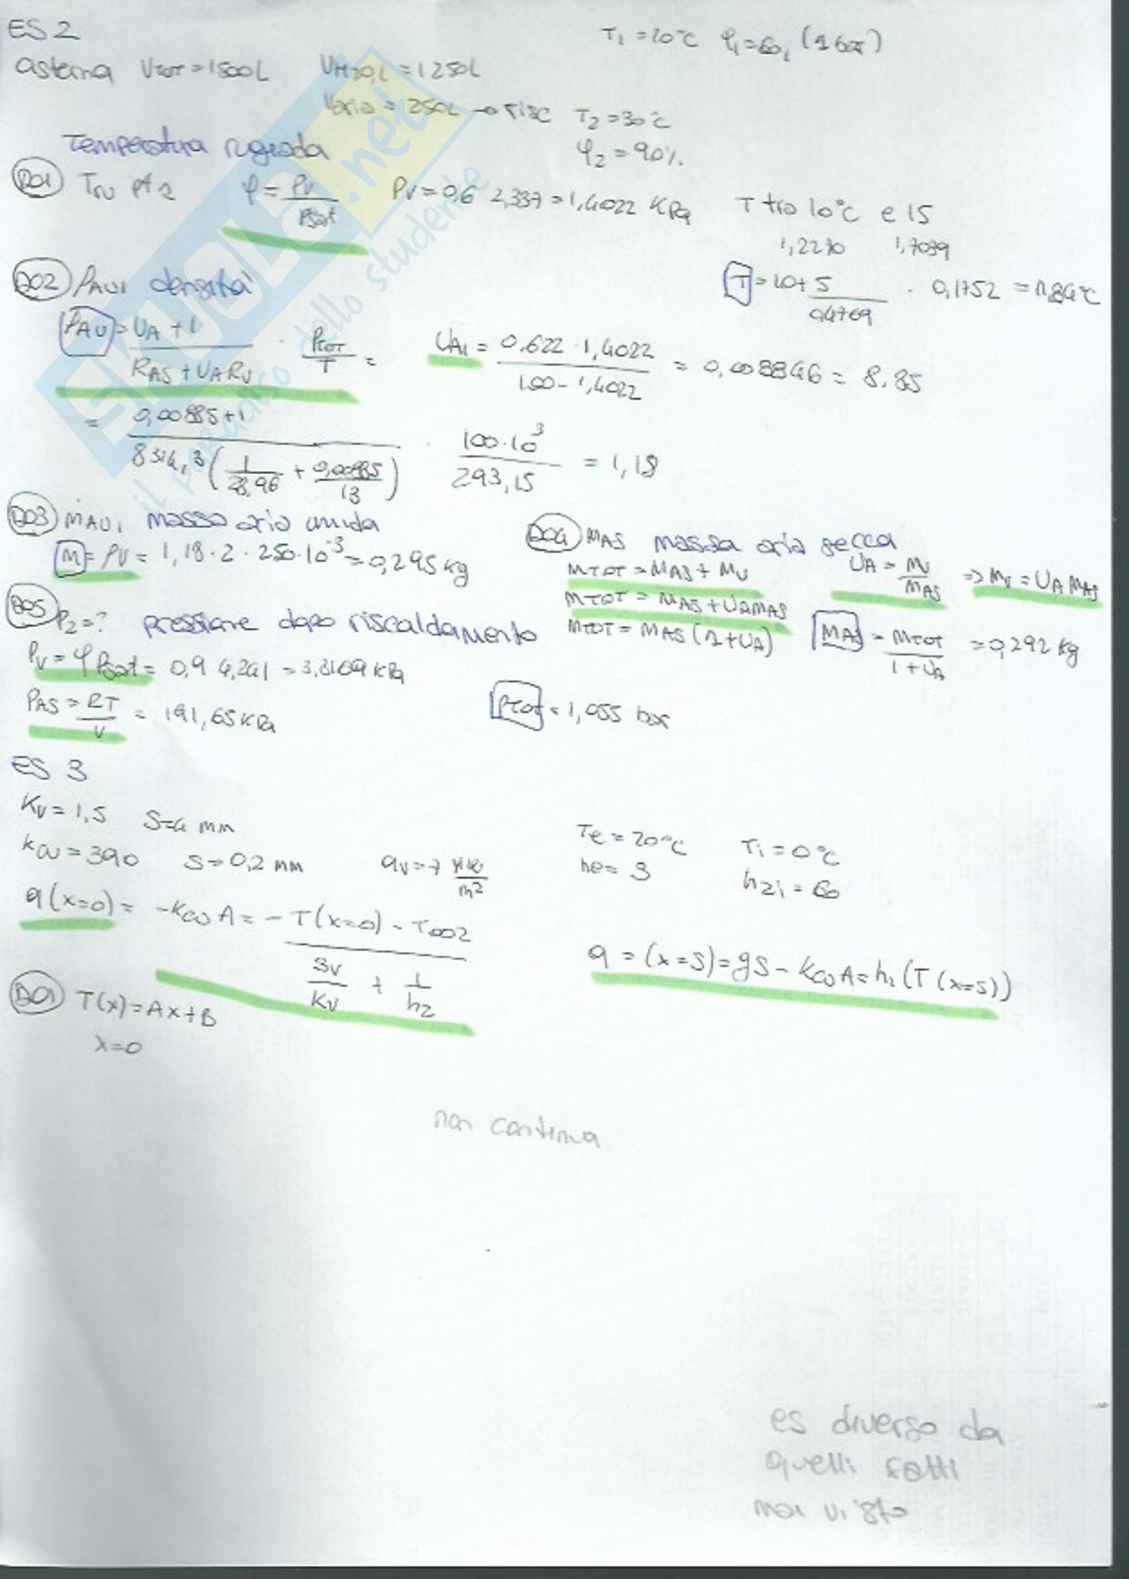 ES 2
T1 = 20°C φ1 = 60, (1 bar)
cisterna VTOT = 1500L VH2O,L = 1250L
Varia = 250L → risc T2 = 30°C
φ2 = 90%
Temperatura rugiada
DO1 Tru pt 2 φ = Pv / Psat Pv = 0,6 2,337 = 1,4022 KPa T tra 10°C e 15
1,2270 1,7039
T = 10 + 5 / 0,4769 · 0,1752 = 11,84°C
DO2 ρAU1 densità
ρAU = UA + 1 / RAS + UARV · PTOT / T = UA1 = 0,622 · 1,4022 / 100 - 1,4022 = 0,008846 = 8,85
= 0,00885 + 1 / 8314,3 (1 / 28,96 + 0,00885 / 18) · 100·10³ / 293,15 = 1,18
DO3 mAU1 massa aria umida
M = ρV = 1,18 · 2 · 250·10⁻³ = 0,295 kg
DO4 MAS massa aria secca
MTOT = MAS + MV UA = MV / MAS ⇒ MV = UA MAS
MTOT = MAS + UAMAS
MTOT = MAS (1 + UA) MAS = MTOT / 1 + UA = 0,292 kg
DO5 P2 = ? pressione dopo riscaldamento
PV = φ Psat = 0,9 4,241 = 3,8169 KPa
PAS = RT / V = 101,65 KPa PTOT = 1,055 bar
ES 3
KV = 1,5 S = 4 mm
kcu = 390 S = 0,2 mm qv = 7 / m²
Te = 20°C Ti = 0°C
he = 3 h2i = 60
q(x=0) = -kcu A = - T(x=0) - T∞2 / SV / KV + 1 / h2
q = (x=S) = gS - kcu A = h1 (T(x=S))
DO1 T(x) = Ax + B
x = 0
non continua
es diverso da
quelli fatti
mai visto
SKUOLA.net
il paradiso dello studente